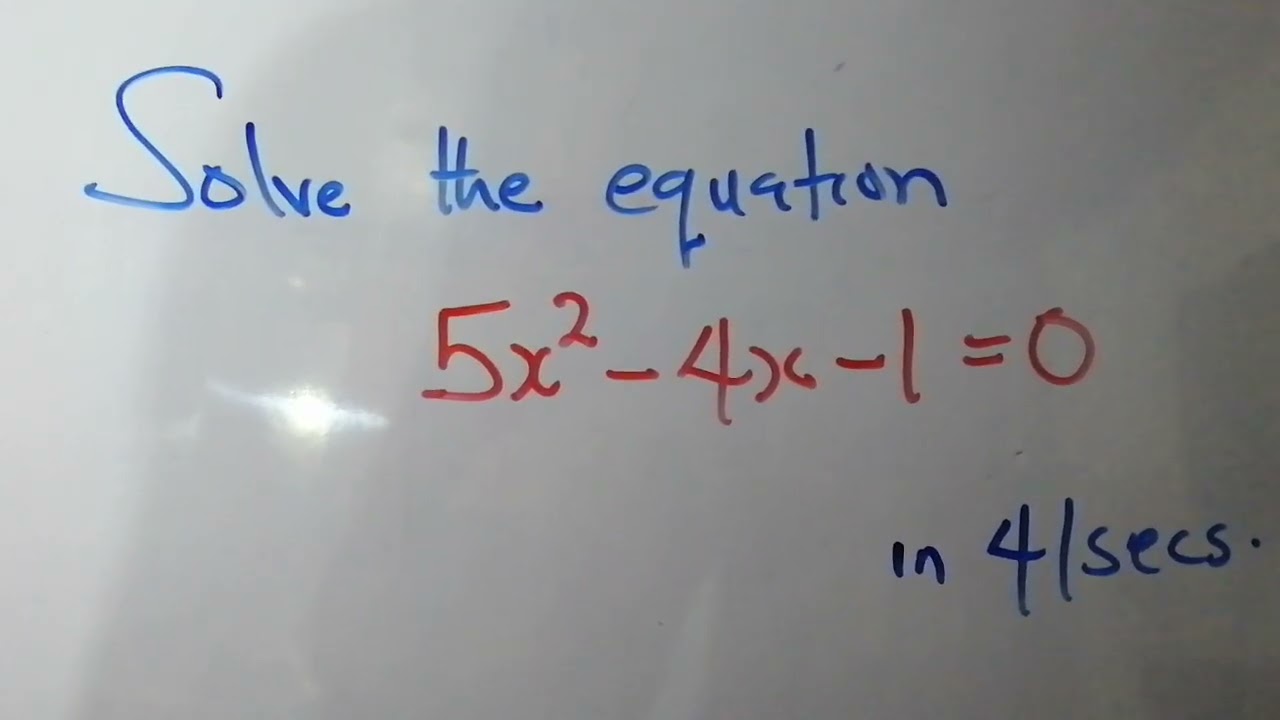 Solve the equation
5x² - 4x - 1 = 0
in 4/secs.